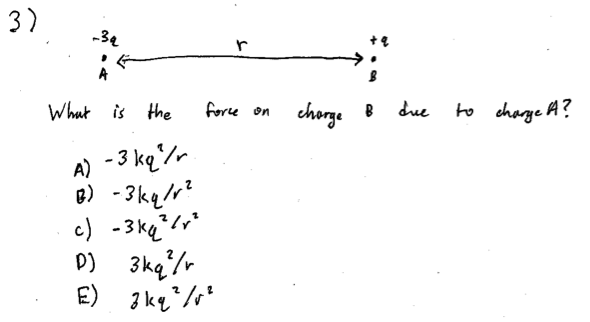 3)
-3q r +q
A B
What is the force on charge B due to charge A?
A) -3kq²/r
B) -3kq/r²
C) -3kq²/r²
D) 3kq²/r
E) 3kq²/r²